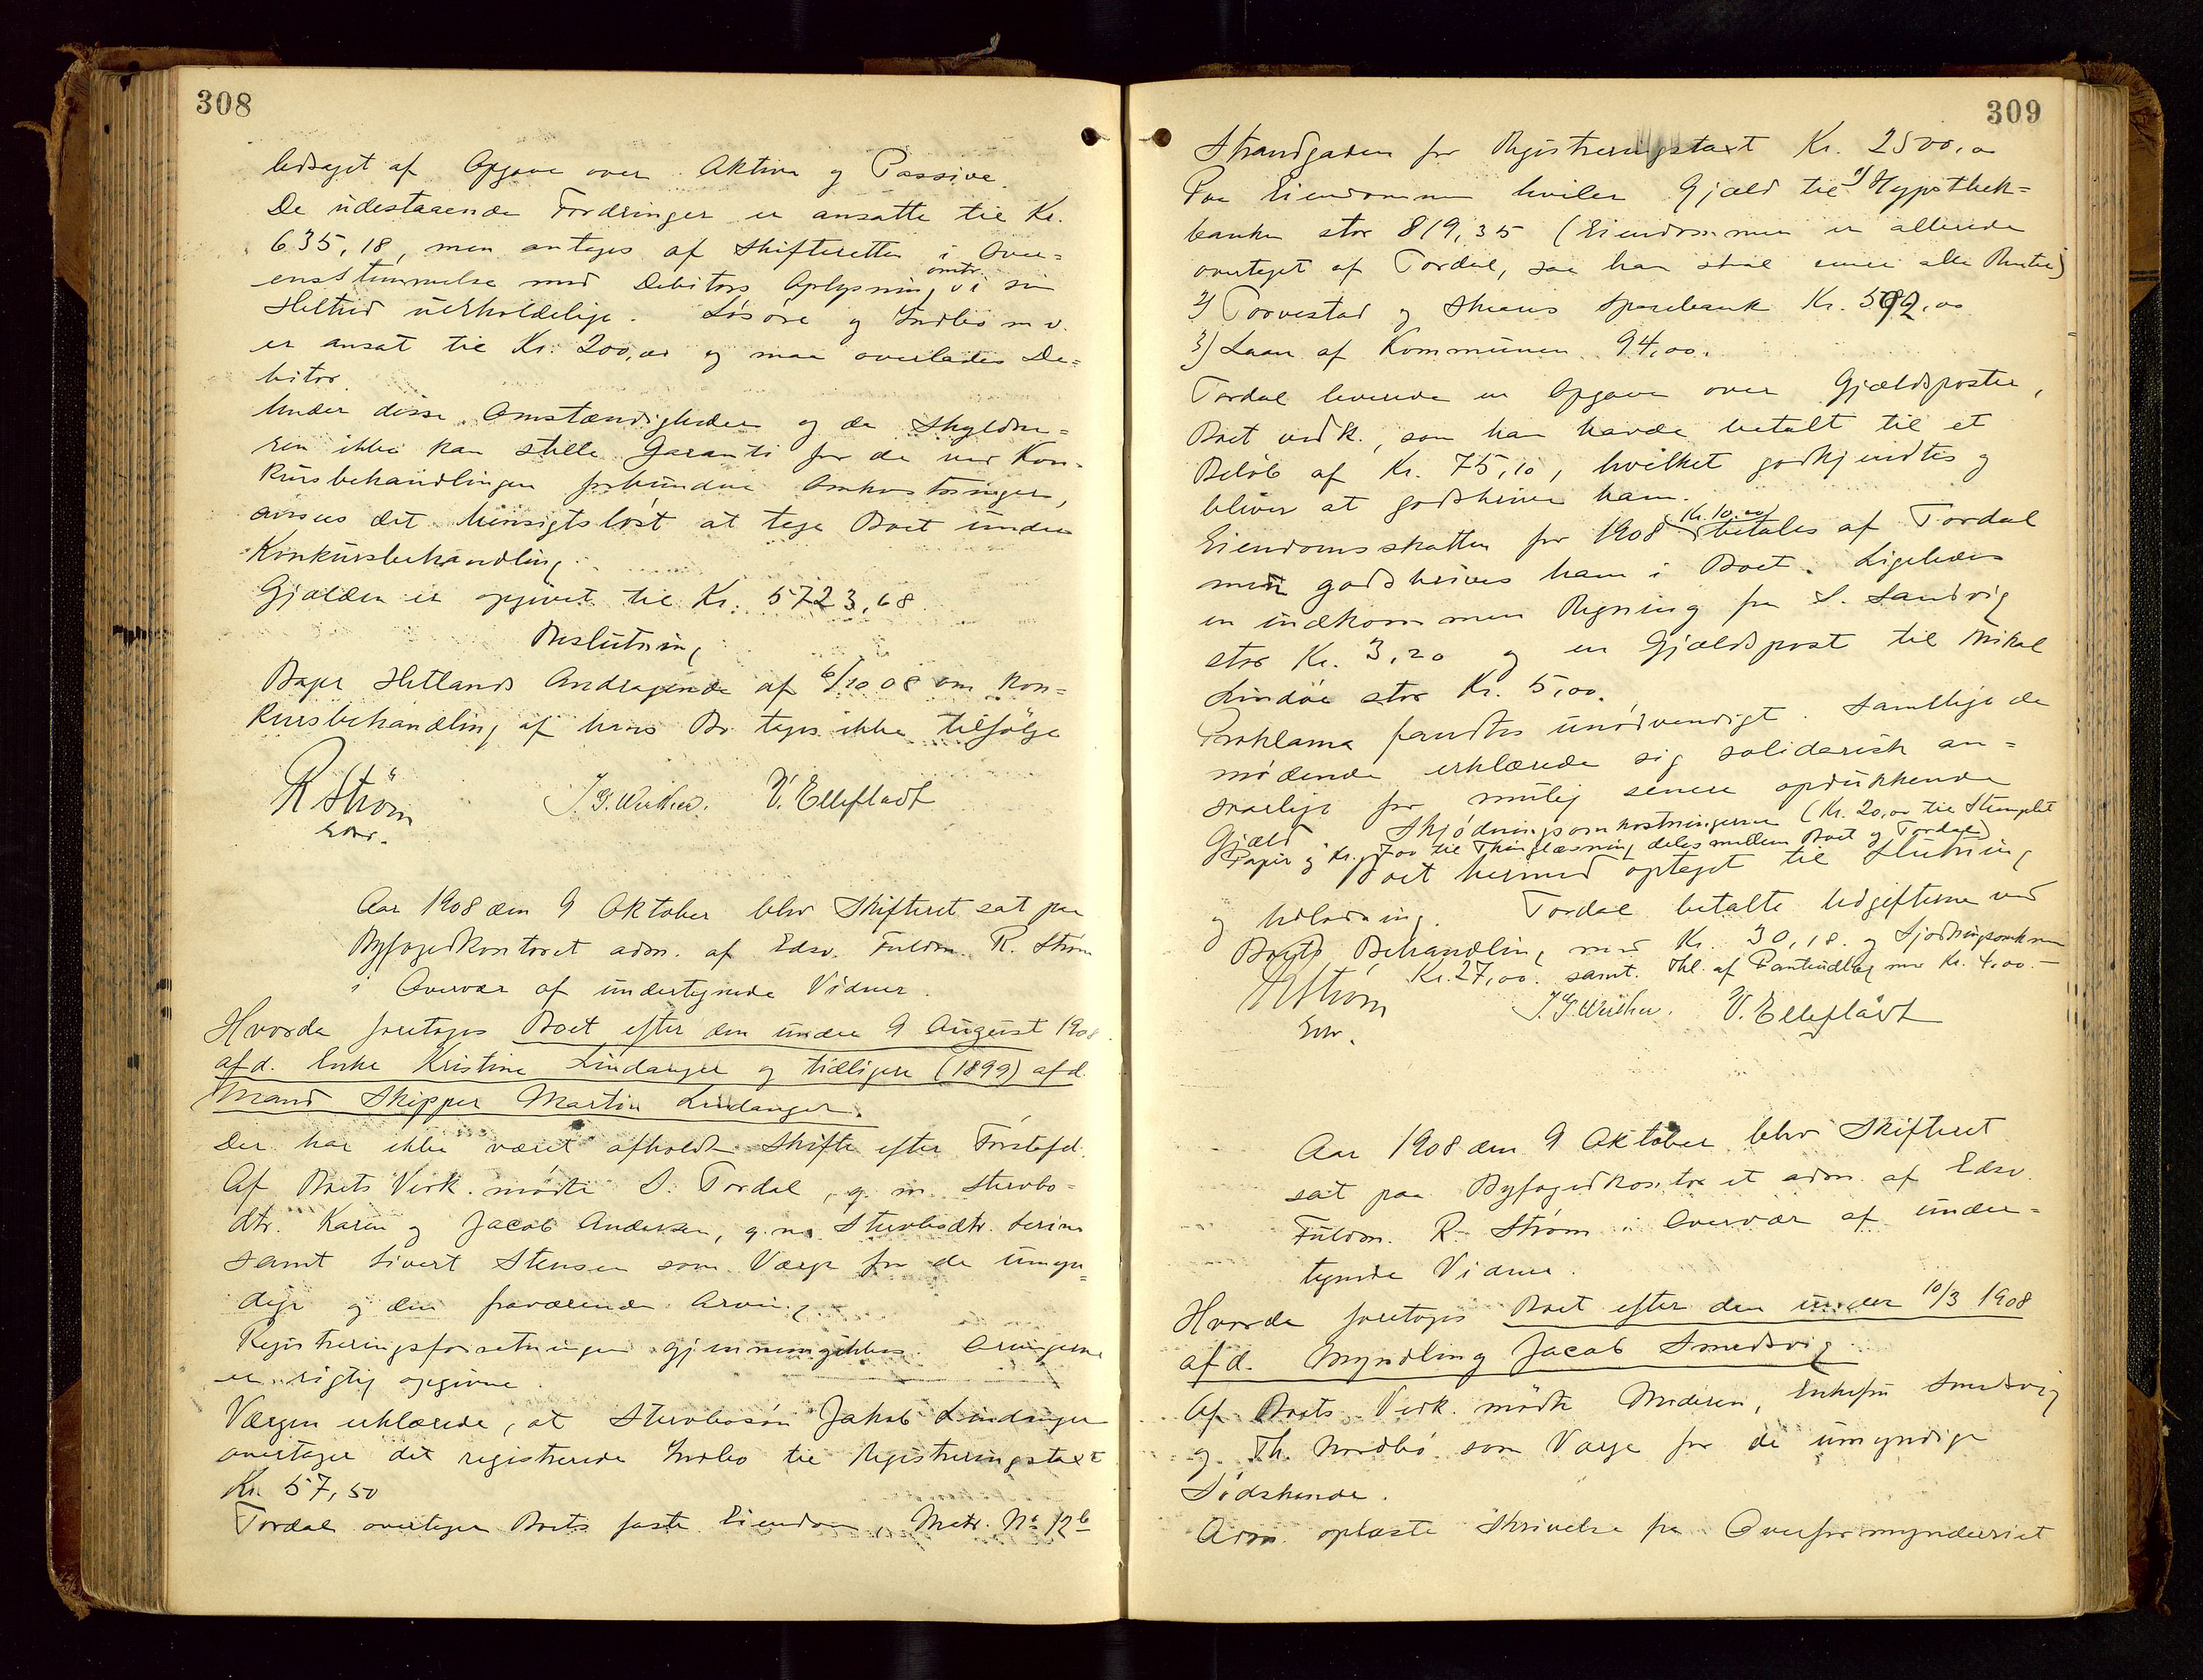 308
ledsaget af Opgave over Aktiva og Passiva.
De udestaaende Fordringer er ansatte til Kr.
635,18, men antages af Skifteretten i Over=
ensstemmelse med Debitors Oplysning omtr. i sin
Helhed uerholdelige. Løsöre og Indbo m.v.
er ansat til Kr. 200,00 og maa overlades De=
bitor.
Under disse Omstændigheder og da Skyldne=
ren ikke kan stille Garanti for de ved Kon=
kursbehandlingen forbundne Omkostninger,
ansees det hensigtsløst at tage Boet under
Konkursbehandling.
Gjælden er opgivet til Kr. 5723,68.
Beslutning
Bager Hetlands Andragende af 6/10 08 om Kon=
kursbehandling af hans Bo tages ikke tilfölge
R Ström
Edsv.
V. Ellefladt
Aar 1908 den 9 Oktober blev Skifteret sat paa
Byfogedkontoret adm. af Edsv. Fuldm. R. Ström
i Overvær af undertegnede Vidner.
Hvorda foretoges Boet efter den under 9 August 1908
afd. Enke Kristine Lindanger og tidligere (1899) afd.
Mand Skipper Martin Lindanger.
Der har ikke været afholdt Skifte efter Förstafd.
Af Boets Vedk. mödte S. Tordal, g. m. Stervbo=
dtr. Karen og Jacob Andersen, g. m. Stervbodtr. Serine
samt Sivert Stensen som Værge for de umyn=
dige og den fraværende Arving.
Registreringsforretningen gjennemgikkes. Arvingerne
er rigtig opgivne.
Værgen erklærede, at Stervbosön Jakob Lindanger
overtager det registrerede Indbo til Registreringstaxt
Kr. 57,50
Tordal overtager Boets faste Eiendom, Matr. No 12b
309
Strandgaden for Registreringstaxt Kr. 2500,00
Paa Eiendommen hviler Gjæld til 1) Hypothek=
banken stor 819,35 (Eiendommen er allerede
overtaget af Tordal, saa han skal svare alle Renter)
2) Torvestad og Skaares Sparebank Kr. 592,00
3) Laan af Kommunen 94,00.
Tordal leverede en Opgave over Gjældsposter,
Boet vedk., som han havde betalt til et
Beløb af Kr. 75,10, hvilket godkjendtes og
bliver at godskrive ham.
Eiendomsskatten for 1908 (Kr. 10,00) betales af Tordal
men godskrives ham i Boet. Ligeledes
en indkommen Regning fra S. Sandvig
stor Kr. 3,20 og en Gjældspost til Mikal
Lindöe stor Kr. 5,00.
Proklama fandtes unødvendigt. Samtlige de
mødende erklærede sig solidarisk an=
svarlige for mulig senere opdukkende
Gjæld. Skjødningsomkostningerne (Kr. 20,00 til Stemplet
Papir og Kr. 7,00 til Thinglæsning deles mellem Boet og Tordal)
Boet hermed optaget til Slutning
og Udlodning. Tordal betalte Udgifterne ved
Boets Behandling med Kr. 30,18 og Skjødningsomkostn
Kr. 27,00 samt Thl. af Pantudlæg med Kr. 4,00.
R Ström
Edsv.
V. Elleflådt
Aar 1908 den 9 Oktober blev Skifteret
sat paa Byfogedkontoret adm. af Edsv.
Fuldm. R. Ström i Overvær af under=
tegnede Vidner.
Hvorda foretoges Boet efter den under 10/3 1908
afd. Myndling Jacob Smedsvig
Af Boets Vedk. mödte Moderen, Enkefru Smedsvig
og Th. Nordbö som Værge for de umyndige
Södskende.
Adm. oplæste Skrivelse fra Overformynderiet